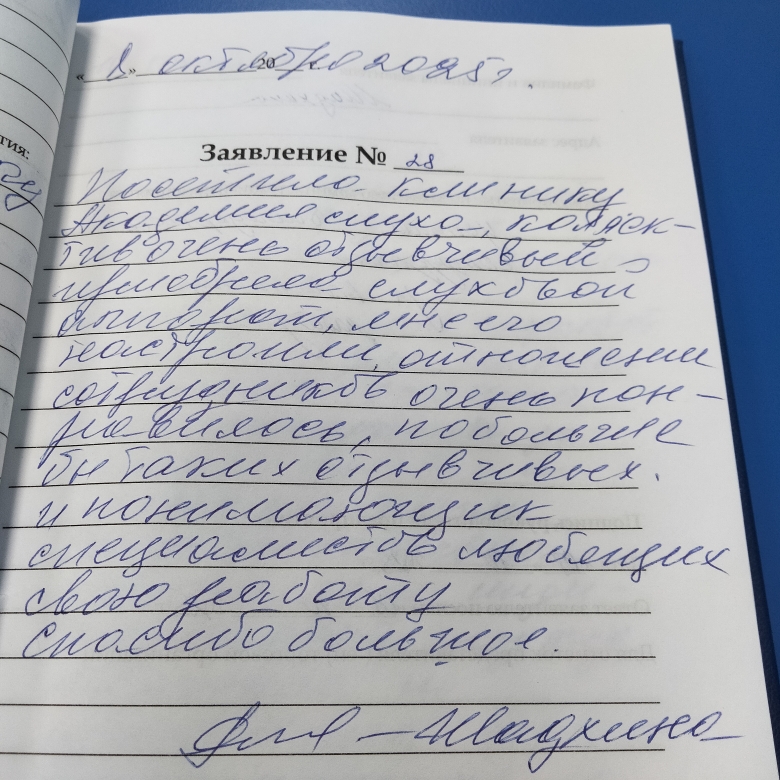 « 1 » октября 2025 г.
тия:
Заявление № 28
Посетила клинику
Академия слуха, коллек-
тив очень отзывчивый,
приобрела слуховой
аппарат, мне его
настроили, отношении
сотрудников очень пон-
равилось, побольше
бы таких отзывчивых.
и понимающих
специалистов любящих
свою работу
спасибо большое.